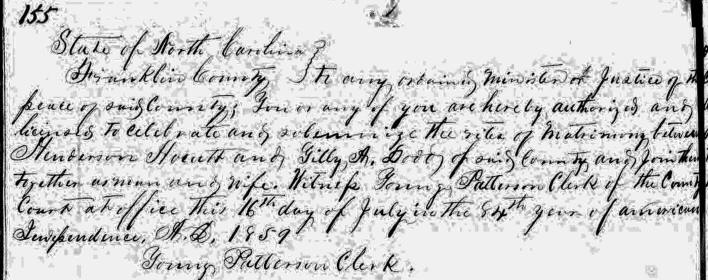 155
State of North Carolina }
Franklin County } to any ordained Minister or Justice of the
peace of said County; You or any of you are hereby authorized and
licensed to celebrate and solemnize the rites of Matrimony between
Henderson Hocutt and Gilly A. Doddy of said County and Join them
together as man and wife. Witness Young Patterson Clerk of the County
Court at office this 16th day of July in the 84th year of american
Independence, A.D. 1859
Young Patterson Clerk.